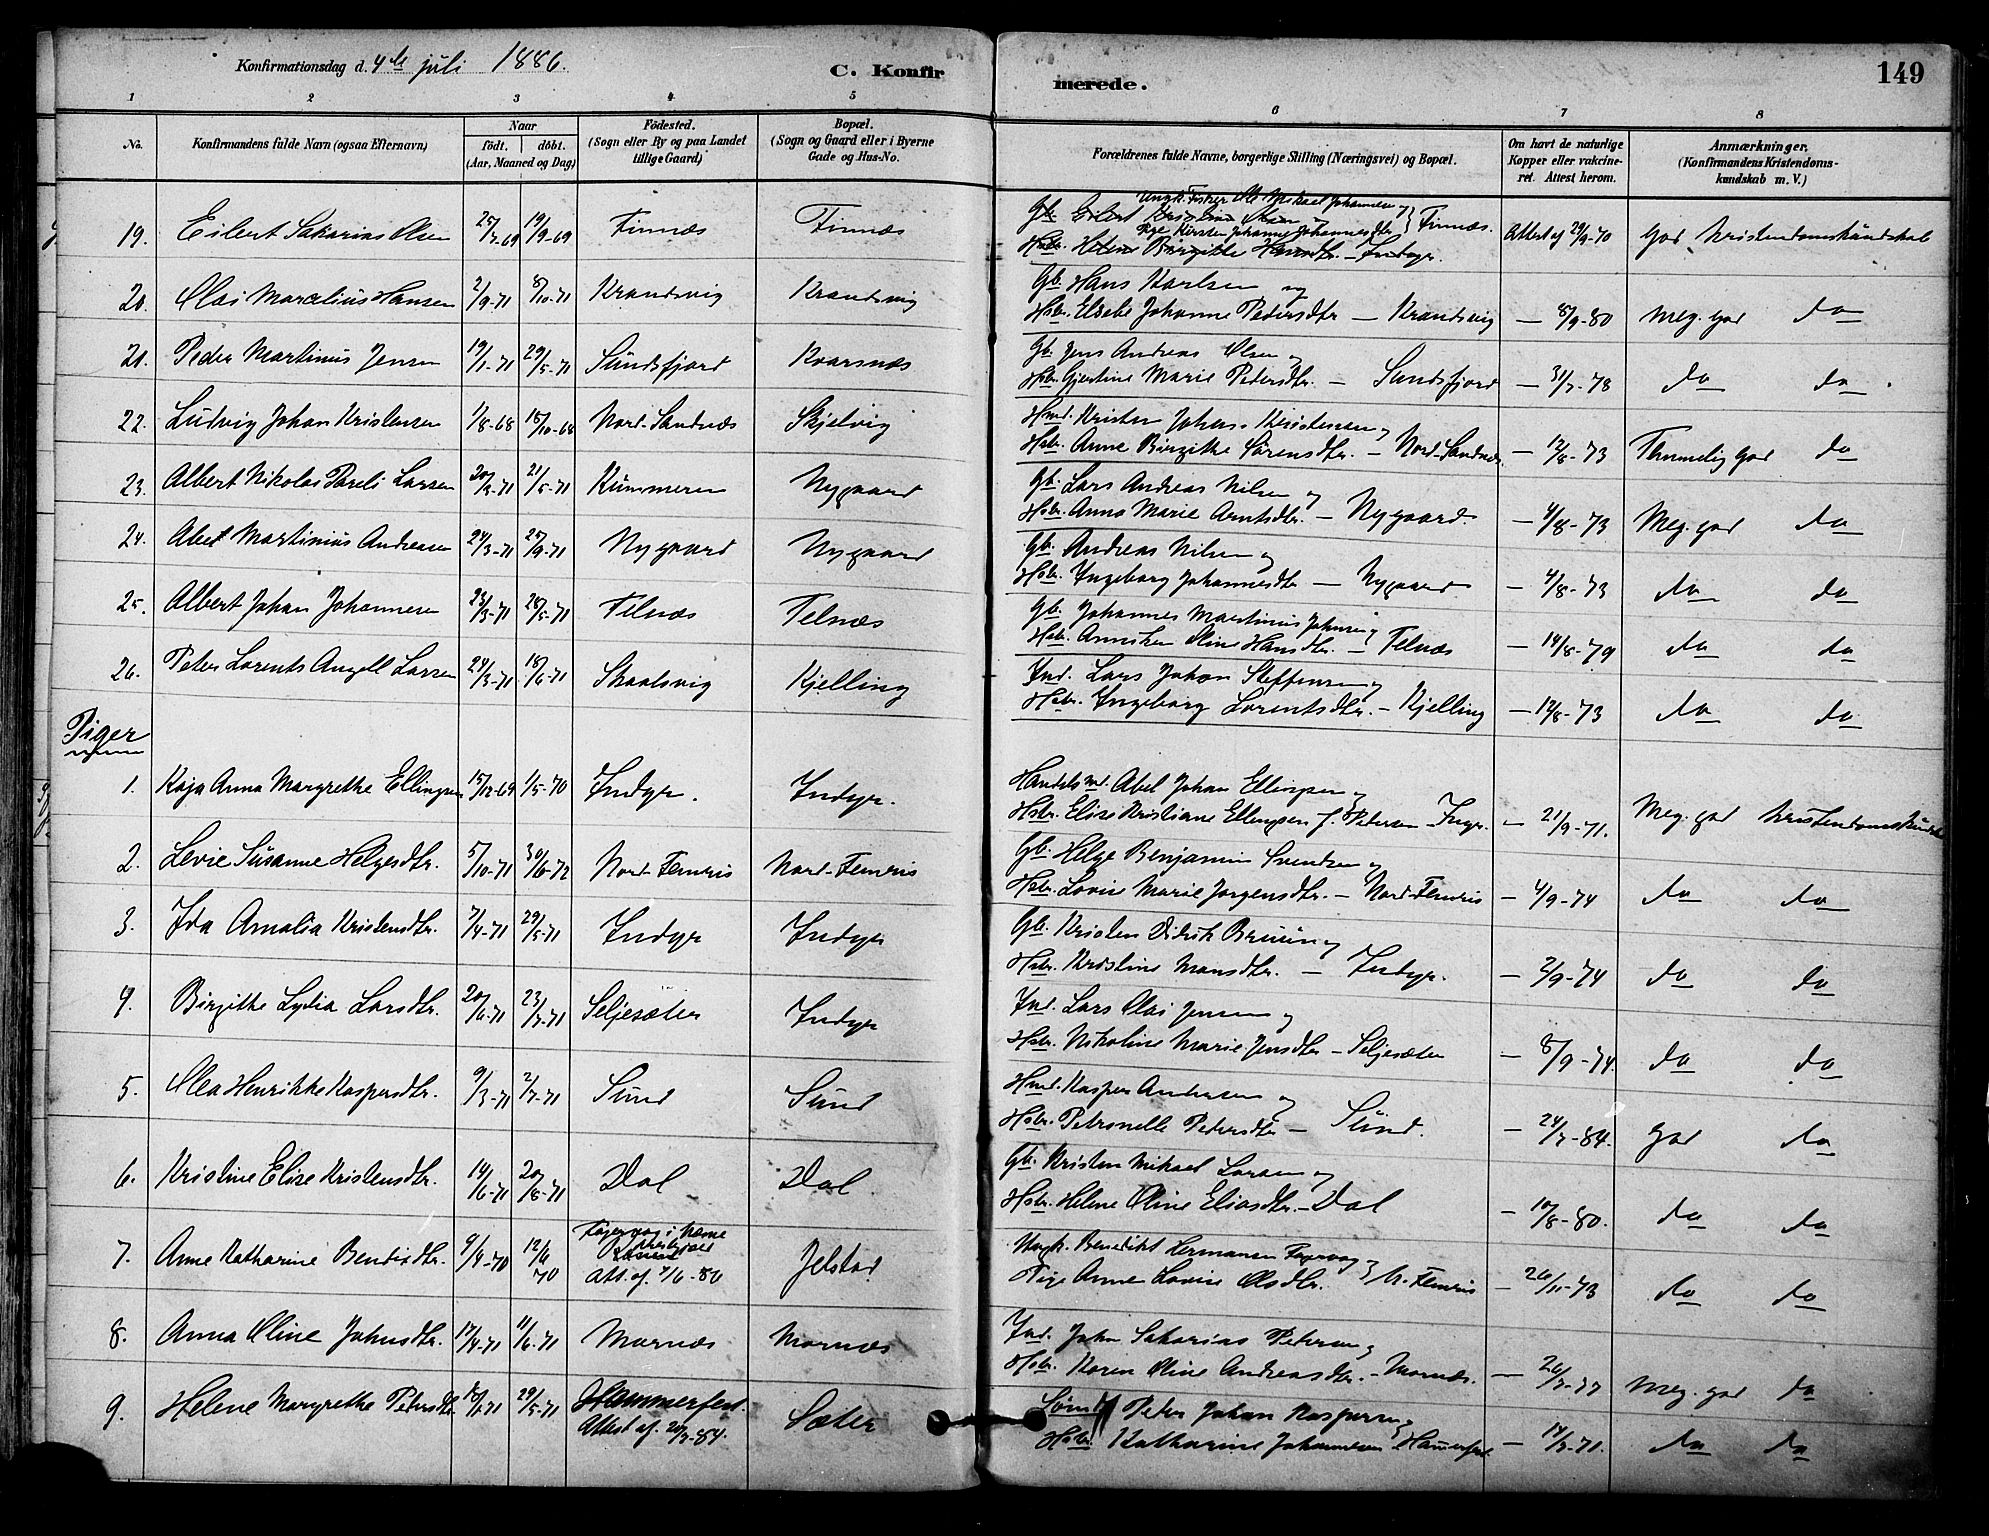 Konfirmationsdag d. 4de juli 1886.
C. Konfirmerede.
149
1 2 3 4 5 6 7 8
No. Konfirmandens fulde Navn (ogsaa Efternavn) Naar födt. döbt. (Aar, Maaned og Dag) Födested. (Sogn eller By og paa Landet tillige Gaard) Bopæl. (Sogn og Gaard eller i Byerne Gade og Hus-No. Forældrenes fulde Navne, borgerlige Stilling (Næringsvei) og Bopæl. Om havt de naturlige Kopper eller vakcineret. Attest herom. Anmærkninger, (Konfirmandens Kristendomskundskab m. V.)
Ungk. Fisker Ole Mikael Johannesen og
19. Eilert Sakarias Olsen 25/7-69 19/9-69 Finnæs Finnæs Gb. Eilert Kristian Olsen og } Finnæs. Attest af 29/9-70 God Kristendomskundskab
Pige Kirsten Johanna Johannesdtr
Hstr. Helene Birgitte Hansdtr. - Indyr.
20. Olai Marcelius Hansen 2/9-71 8/10-71 Krandsvig Krandsvig Gb. Hans Karlsen og
Hstr. Elsebe Johanne Pedersdtr - Krandsvig - 8/9-80 Meg. god do
21. Peder Martinus Jensen 19/1-71 29/5-71 Sundsfjord Kvarsnæs Gb. Jens Andreas Olsen og
Hstr. Gjertine Marie Pedersdtr. - Sundsfjord - 31/7-73 do do
22. Ludvig Johan Kristensen 1/8-68 18/10-68 Nord-Sandnæs Skjelvig Hmd. Kristen Johan Kristensen og
Hstr. Anne Birgitte Sörensdtr. - Nord-Sandnæs - 12/8-73 Temmelig god do
23. Albert Nikolai Pareli Larsen 20/3-71 21/5-71 Kummeren Nygaard Gb. Lars Andreas Nilsen og
Hstr. Anna Marie Arntsdtr. - Nygaard. - 4/8-73 Meg. god do
24. Abel Martinius Andreasen 24/3-71 /9-71 Nygaard Nygaard Gb. Andreas Nilsen og
Hstr. Ingeborg Johannesdtr - Nygaard - 4/8-73 do do
25. Albert Johan Johannesen 23/3-71 28/5-71 Felnæs Felnæs Gb. Johannes Martinius Johnsen og
Hstr. Anniken Oline Hansdtr. - Felnæs - 14/8-79 do do
26. Peter Lorents Angell Larsen 24/3-71 18/6-71 Skaalsvig Kjelling Ind. Lars Johan Steffensen og
Hstr. Ingeborg Lorentsdtr. - Kjelling - 12/8-73 do do
Piger
1. Kaja Anna Margrethe Ellingsen 15/12-69 1/5-70 Indyr. Indyr. Handelsmd. Abel Johan Ellingsen og
Hstr. Elise Kristiane Ellingsen f. Petersen - Indyr. - 21/9-71. Meg. god Kristendomskundsk
2. Levie Susanne Helgesdtr. 5/10-71 30/6-72 Nord-Femris Nord-Femris Gb. Helge Benjamin Svendsen og
Hstr. Lovise Marie Jørgensdtr. - Nord-Femris - 4/9-74 do do
3. Ida Amalia Kristensdtr. 7/4-71 29/5-71 Indyr Indyr Gb. Kristen Didrik Bruun og
Hstr. Kristine Monsdtr. - Indyr. - 2/9-74 do do
4. Birgitte Lydia Larsdtr. 20/6-71 23/7-71 Seljesæter Indyr Ind. Lars Olai Jensen og
Hstr. Nikoline Marie Jensdtr - Seljesæter - 8/9-74. do do
5. Olea Henrikke Kaspersdtr. 9/3-71 2/7-71 Sund Sund Hmd. Kasper Andersen og
Hstr. Petronelle Pedersdtr - Sund. - 24/7-84. god do
6. Kristine Elise Kristensdtr. 14/6-71 20/8-71 Dal Dal Gb. Kristen Mikael Larsen og
Hstr. Helene Oline Eliasdtr. - Dal - 10/8-80. do do
7. Anne Katharine Bendixdtr. 9/4-70 12/6 70 Fagervog i Næsne
Att. af /6-80 Jelstad Ungk. Benedikt Hermansen Fagervog og
Pige Anne Lovise Olsdtr. } N. Femris - 26/11-73 do do
8. Anna Oline Johnsdtr. 17/4-71 11/6-71 Mornæs Mornæs Ind. John Sakarias Petersen og
Hstr. Karen Oline Andreasdtr. - Mornæs. - 26/7-77 Meg. god do
9. Helene Margrethe Petersdtr 29/5-71 Hammerfest. Attest af. 20/7-84. Sæter Peter Johan Kaspersen og
Hstr. Katharine Johannesen Hammerfest - 14/7-71. do do